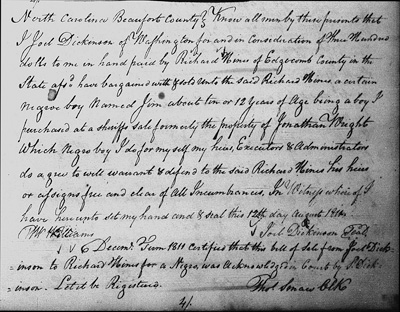 North Carolina Beaufort County } Know all men by these presents that
I Joel Dickinson of Washington for and in Consideration of three Hundred
dolls to me in hand paid by Richard Hines of Edgecomb County in the
State afsd. have bargained with & sold unto the said Richard Hines a certain
Negroe boy Named Jim about ten or 12 years of Age being a boy I
purchased at a sheriffs sale formerly the property of Jonathan Wright
Which Negro boy I do for my self my heirs, Executors & Administrators
do agree to well warrant & defend to the said Richard Hines his heirs
or assigns free and clear of All Incumbrances, In Witness whereof I
have hereunto set my hand and & seal this 12th day August 1811
Williams Joel Dickinson Seal
Decemr. Term 1811 Certified that this bill of Sale from Joel Dick-
=inson to Richard Hines for a Negro, was Acknowledged in Court by J. Dick-
=inson. Let it be Registered. Thos Smaw Clk